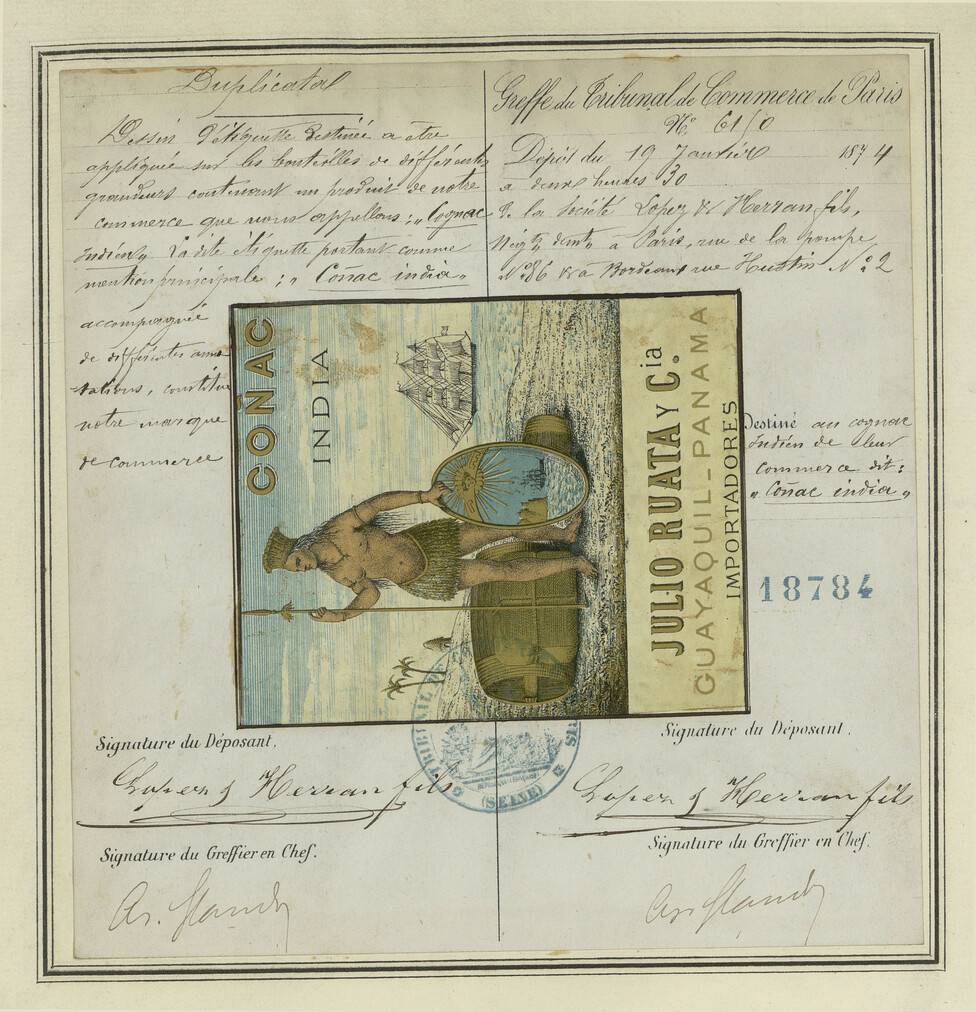 Duplicatal
Dessin d'étiquette destinée a être
appliquée sur les bouteilles de différents
grandeurs contenant un produit de notre
commerce que nous appellons: „Cognac
Indien„ La dite étiquette portant comme
mention principale ; „ Coñac india„
accompagnée
de différentes anno-
tations, constitue
notre marque
de commerce
Greffe du Tribunal de Commerce de Paris
N°. 6150
Dépôt du 19 Janvier 1874
a deux heures 30
de la Société Lopez & Herran fils,
Négts demt à Paris, rue de la pompe
N°. 86 & à Bordeaux rue Hustin N°. 2
Destiné au cognac
Indien de leur
commerce dit:
„ Coñac india „
18784
COÑAC
INDIA
JULIO RUATA Y Cia.
GUAYAQUIL_PANAMA
IMPORTADORES
TRIBUNAL DE
(SEINE)
Signature du Déposant.
Lopez y Herran fils
Signature du Greffier en Chef.
Signature du Déposant.
Lopez y Herran fils
Signature du Greffier en Chef.